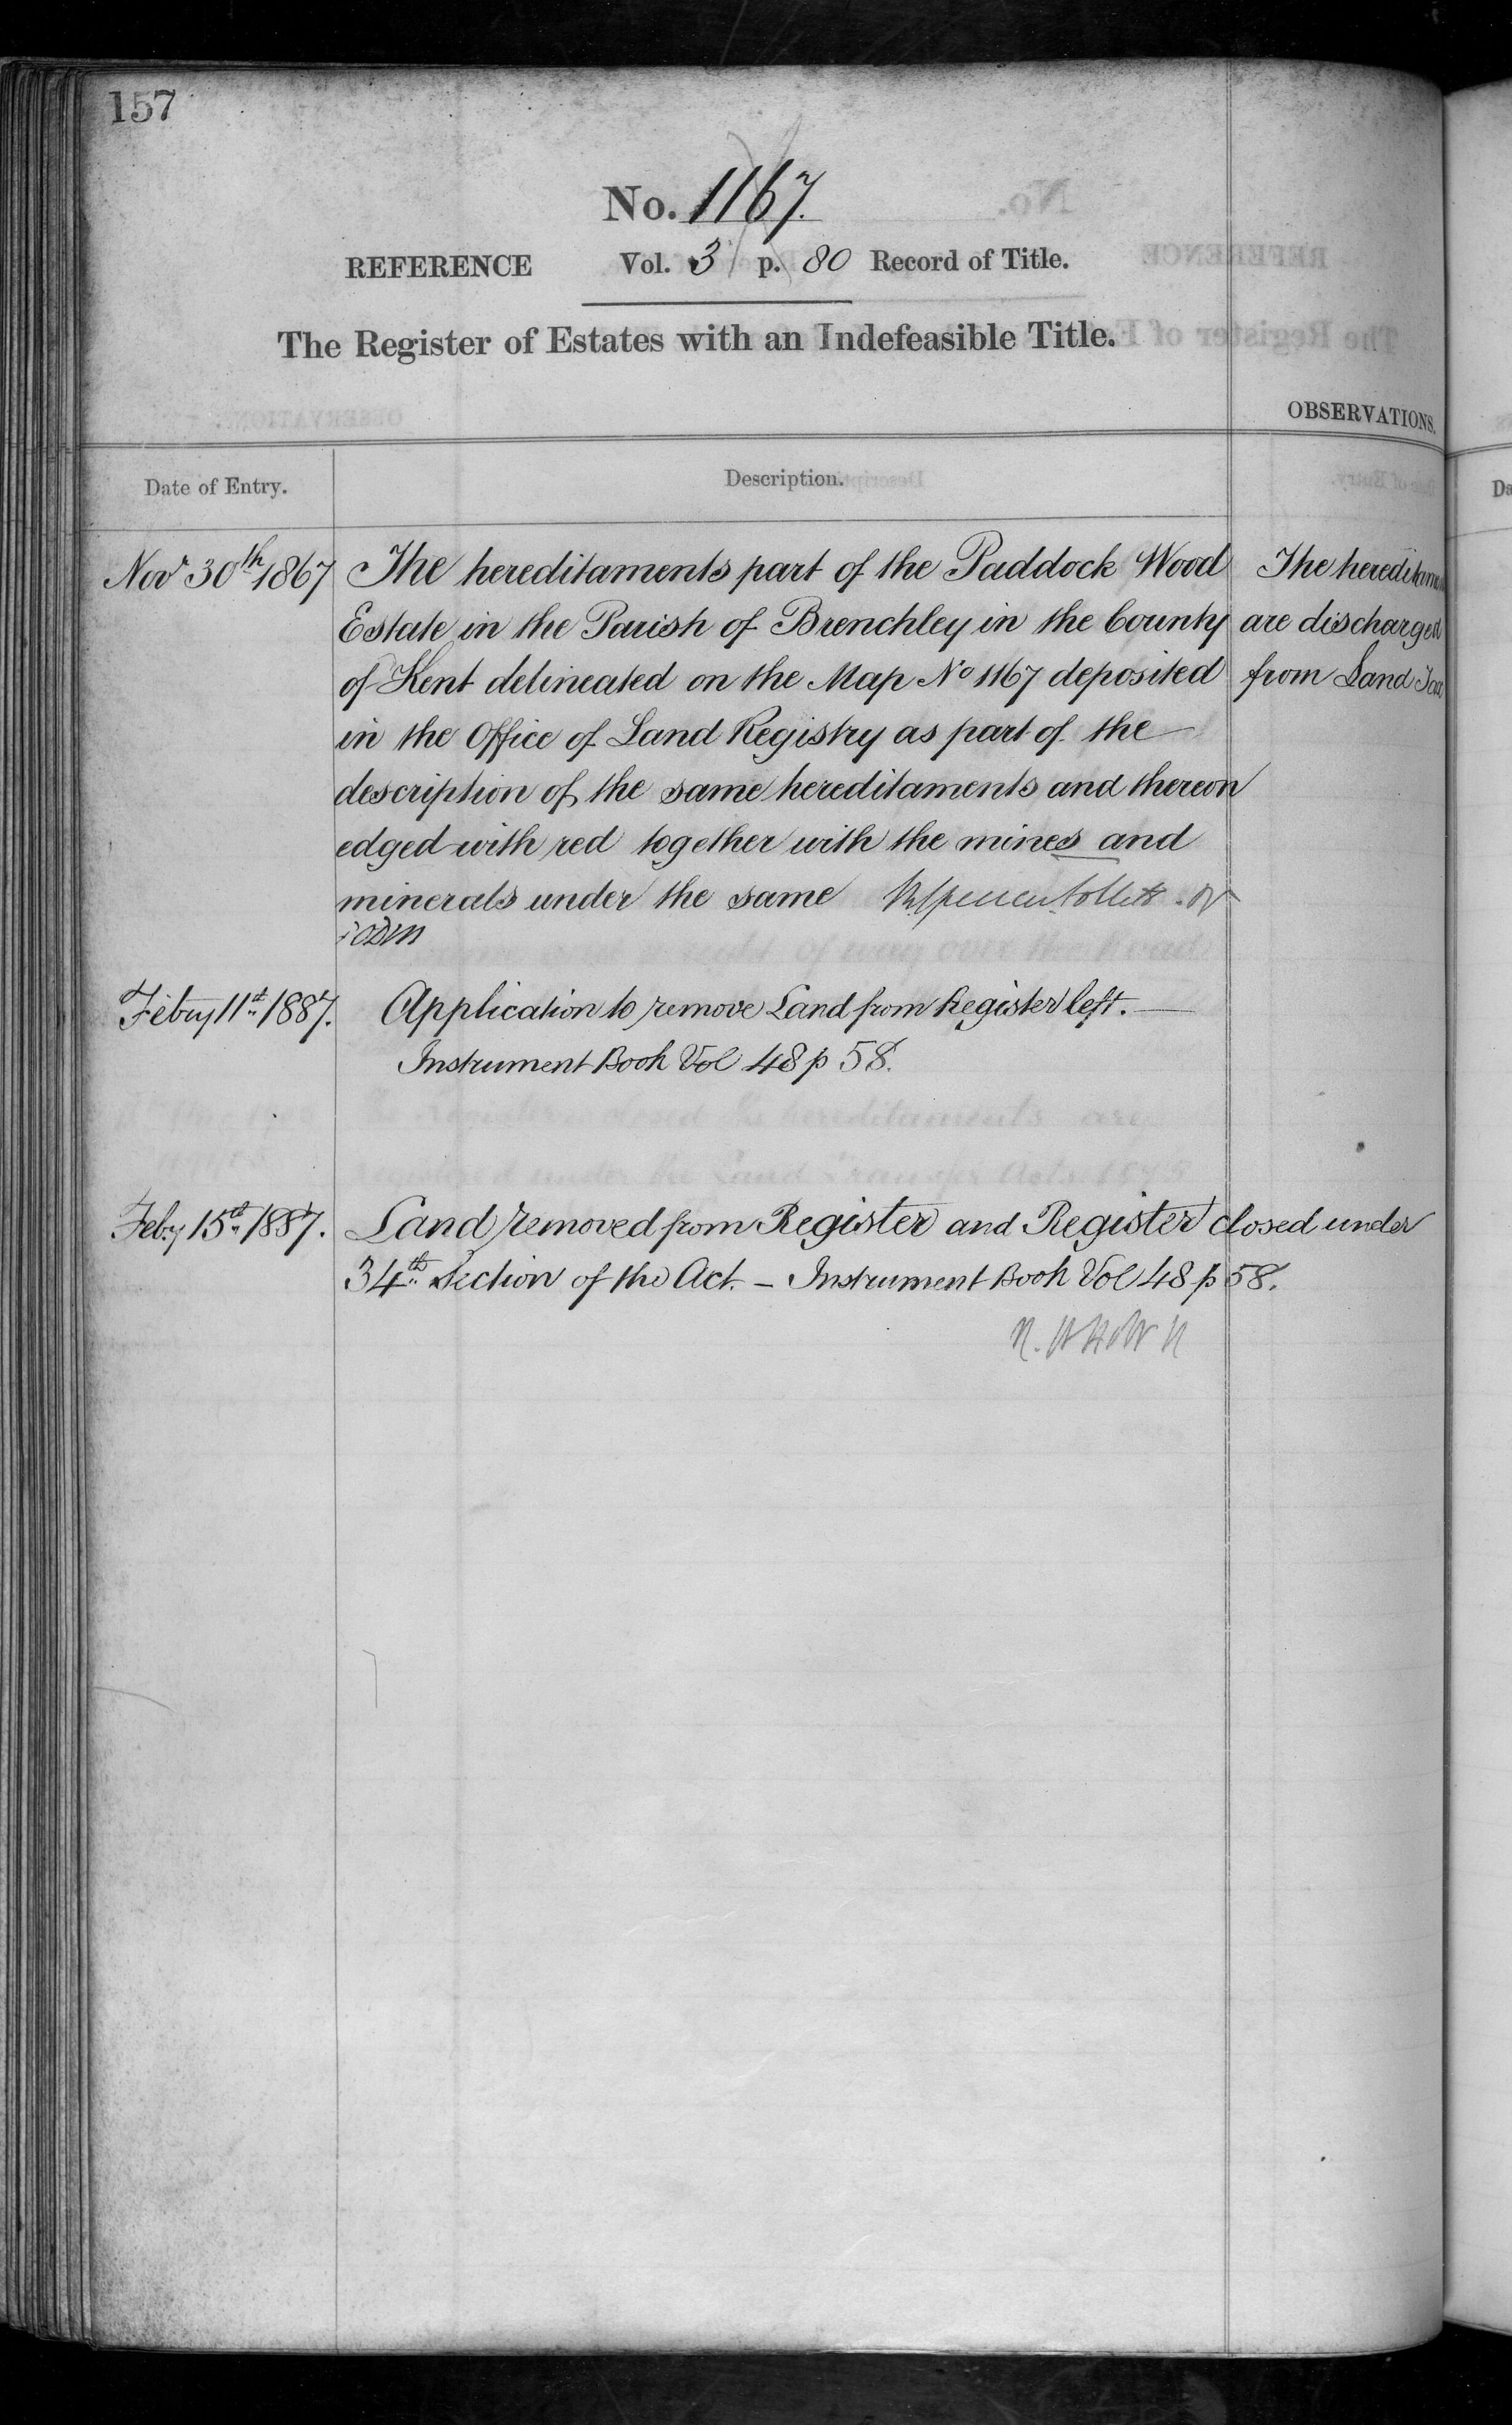 157
No. 1167.
REFERENCE Vol. 3 p. 80 Record of Title.
The Register of Estates with an Indefeasible Title.
OBSERVATIONS.
Date of Entry. Description.
Novr 30th 1867 The hereditaments part of the Paddock Wood The hereditam
Estate in the Parish of Brenchley in the County are discharged
of Kent delineated on the Map No 1167 deposited from Land Tax
in the Office of Land Registry as part of the
description of the same hereditaments and thereon
edged with red together with the mines and
minerals under the same
Febry 11th 1887. Application to remove Land from Register left.
Instrument Book Vol 48 p 58.
Feby 15th 1887. Land removed from Register and Register closed under
34th Section of the Act. — Instrument Book Vol 48 p 58.